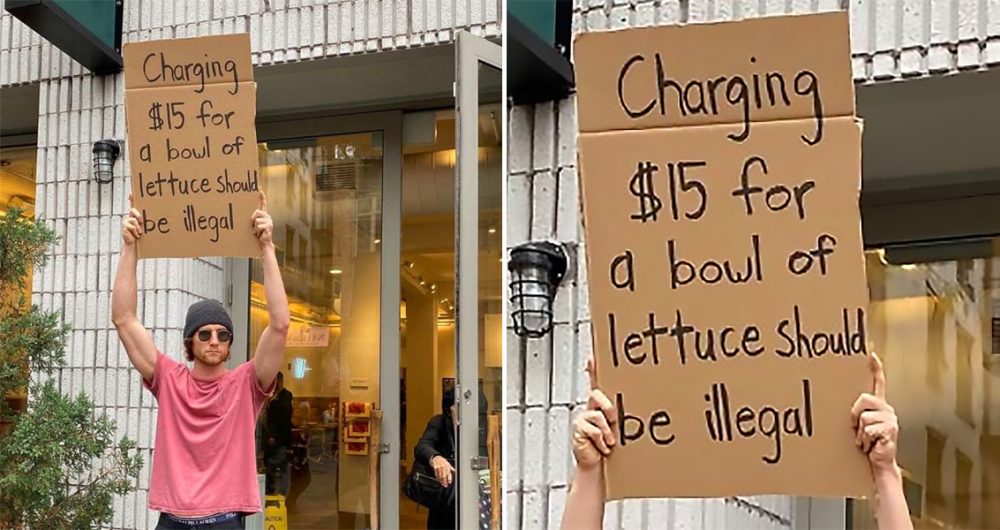 Charging
$15 for
a bowl of
lettuce should
be illegal
RALPH LAUREN
CAUTION
Charging
$15 for
a bowl of
lettuce should
be illegal